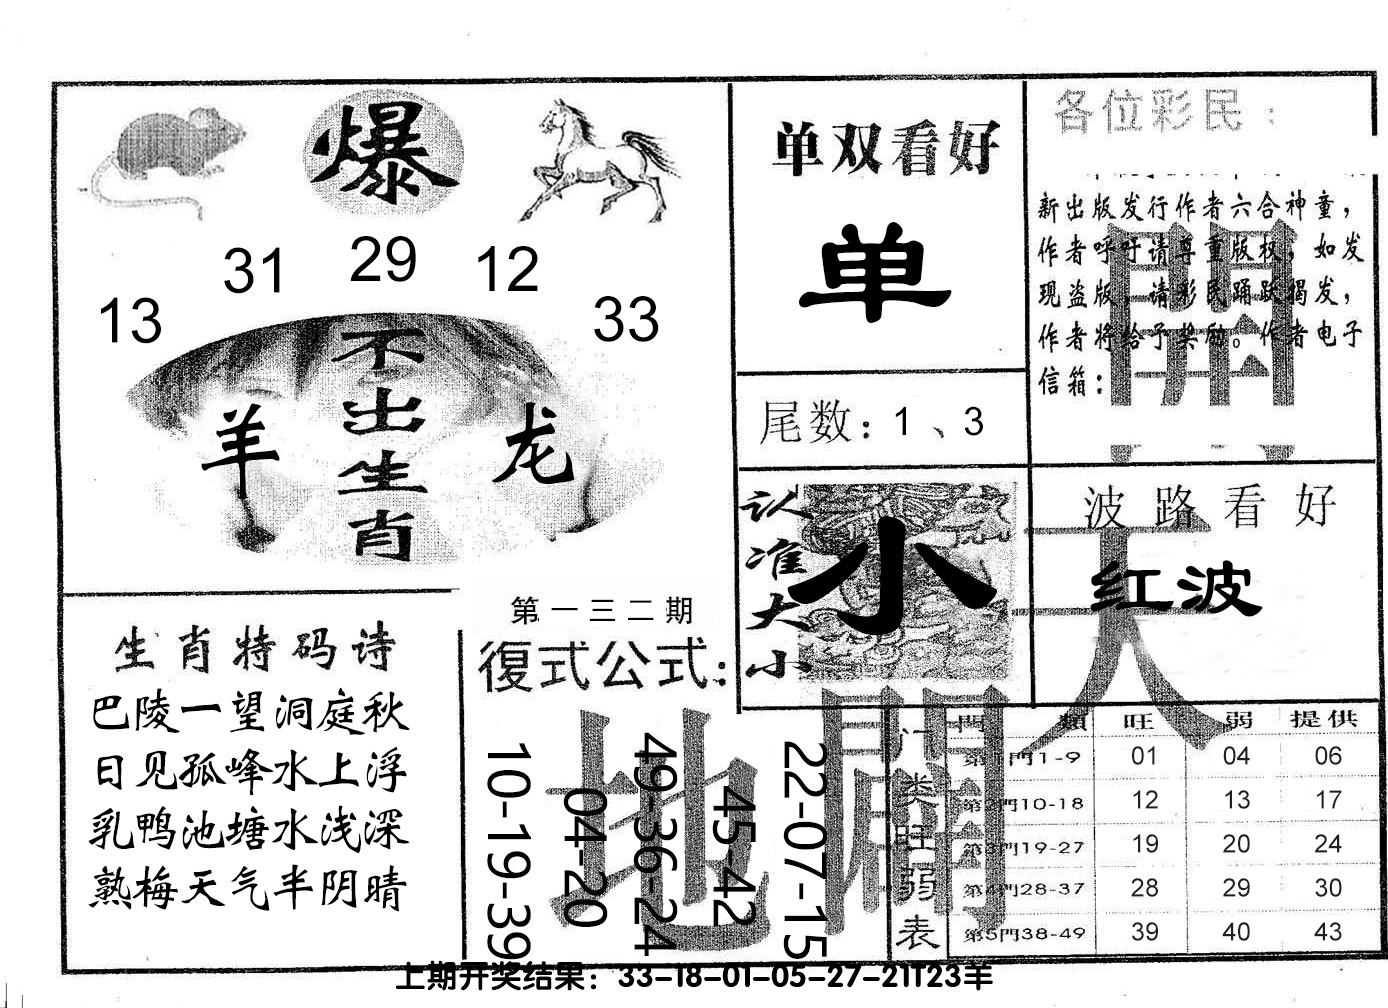 爆
31 29 12
13 33
不出生肖
羊 龙
单双看好
单
尾数：1 、3
各位彩民：
新出版发行作者六合神童，
作者呼吁请尊重版权，如发
现盗版，请彩民踊跃揭发，
作者将给予奖励。作者电子
信箱：
認准大小
小
波路看好
红波
生肖特码诗
巴陵一望洞庭秋
日见孤峰水上浮
乳鸭池塘水浅深
熟梅天气半阴晴
第一三二期
復式公式：
10-19-39
04-20
49-36-24
45-42
22-07-15
天
地
門類 旺 弱 提供
第1門1-9 01 04 06
第2門10-18 12 13 17
第3門19-27 19 20 24
第4門28-37 28 29 30
第5門38-49 39 40 43
门类旺弱表
上期开奖结果：33-18-01-05-27-21T23羊